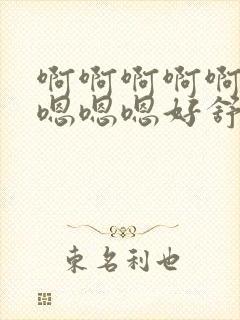 啊啊啊啊啊
嗯嗯嗯好舒
束名利也